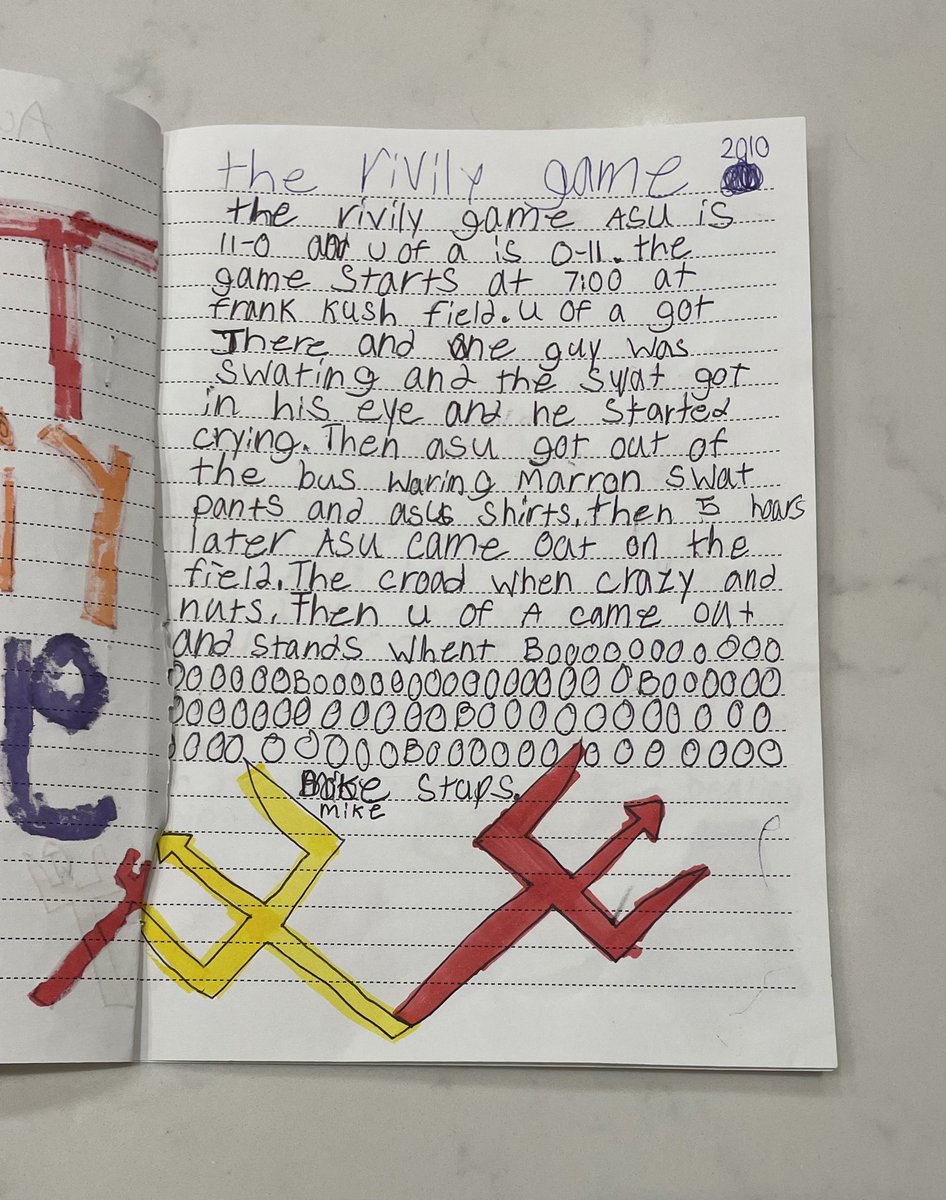 T
iY
e
the rivily game 2010
the rivily game ASU is
11-0 and U of a is 0-11. the
game starts at 7:00 at
frank Kush field. U of a got
There and one guy was
swating and the swat got
in his eye and he started
crying. Then asu got out of
the bus waring Marron swat
pants and asus shirts. then 5 hoars
later ASU came oat on the
field. The croad when crazy and
nuts. Then U of A came out
and stands whent Boooooooooooo
OOOOOOBooooooooooooooooOBOOOOOO
OOOOOOOOOOOOOBOOOOOOOOOOOOO
OOOOOOOOOOBOOOOOOOOOOOOOO
Mike staps.
MIKE